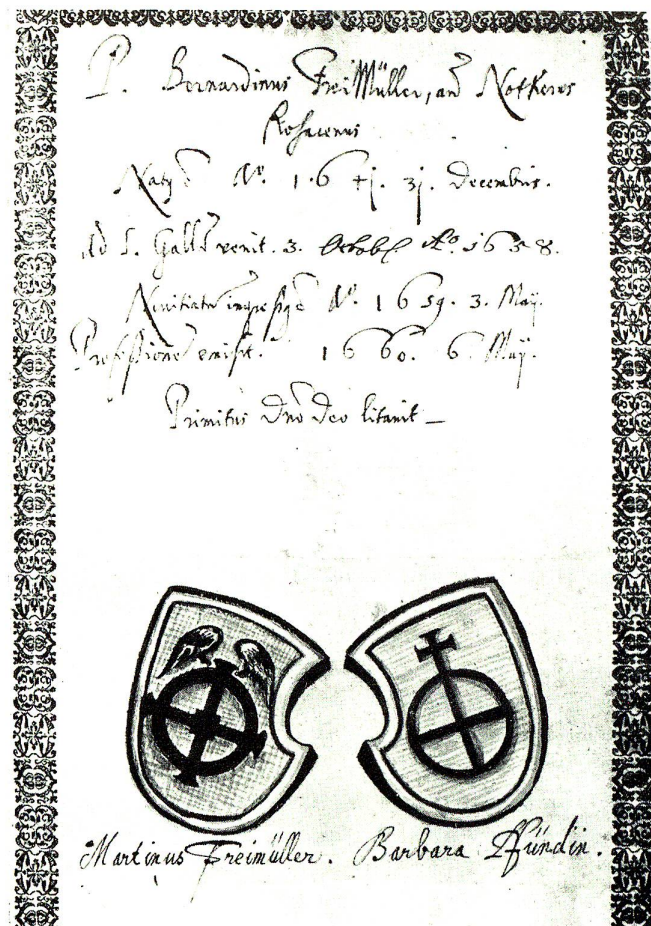 P. Bernardinus FreiMüller, an Notkerus
Rosacenus
Natus A°. 1641. 31. Decembris.
Ad S. Gallum venit. 3. Octob A°. 1658.
Novitiatum ingressus A°. 1659. 3. Maÿ.
Professionem emisit. 1660. 6. Maÿ.
Primitus Dno Deo litavit
Martinus Freimüller. Barbara Pfündin.